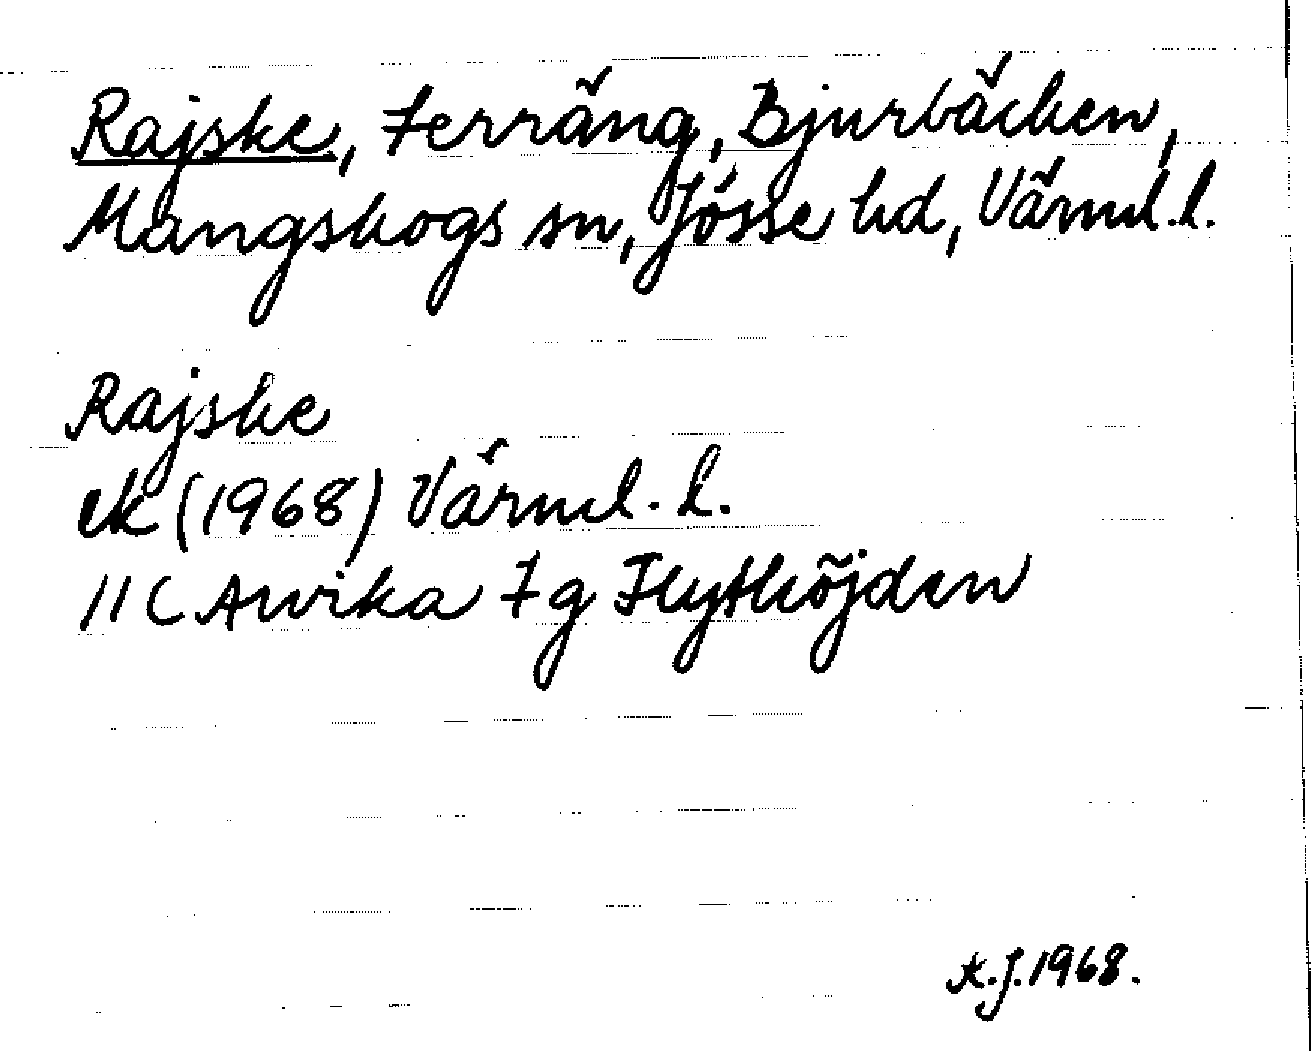 Rajske, Terräng, Bjurbäcken,
Mangskogs sn, Jösse hd, Värml. l.
Rajske
ek (1968) Värml. l.
11C Arvika 7g Flythöjden
A.J. 1968.